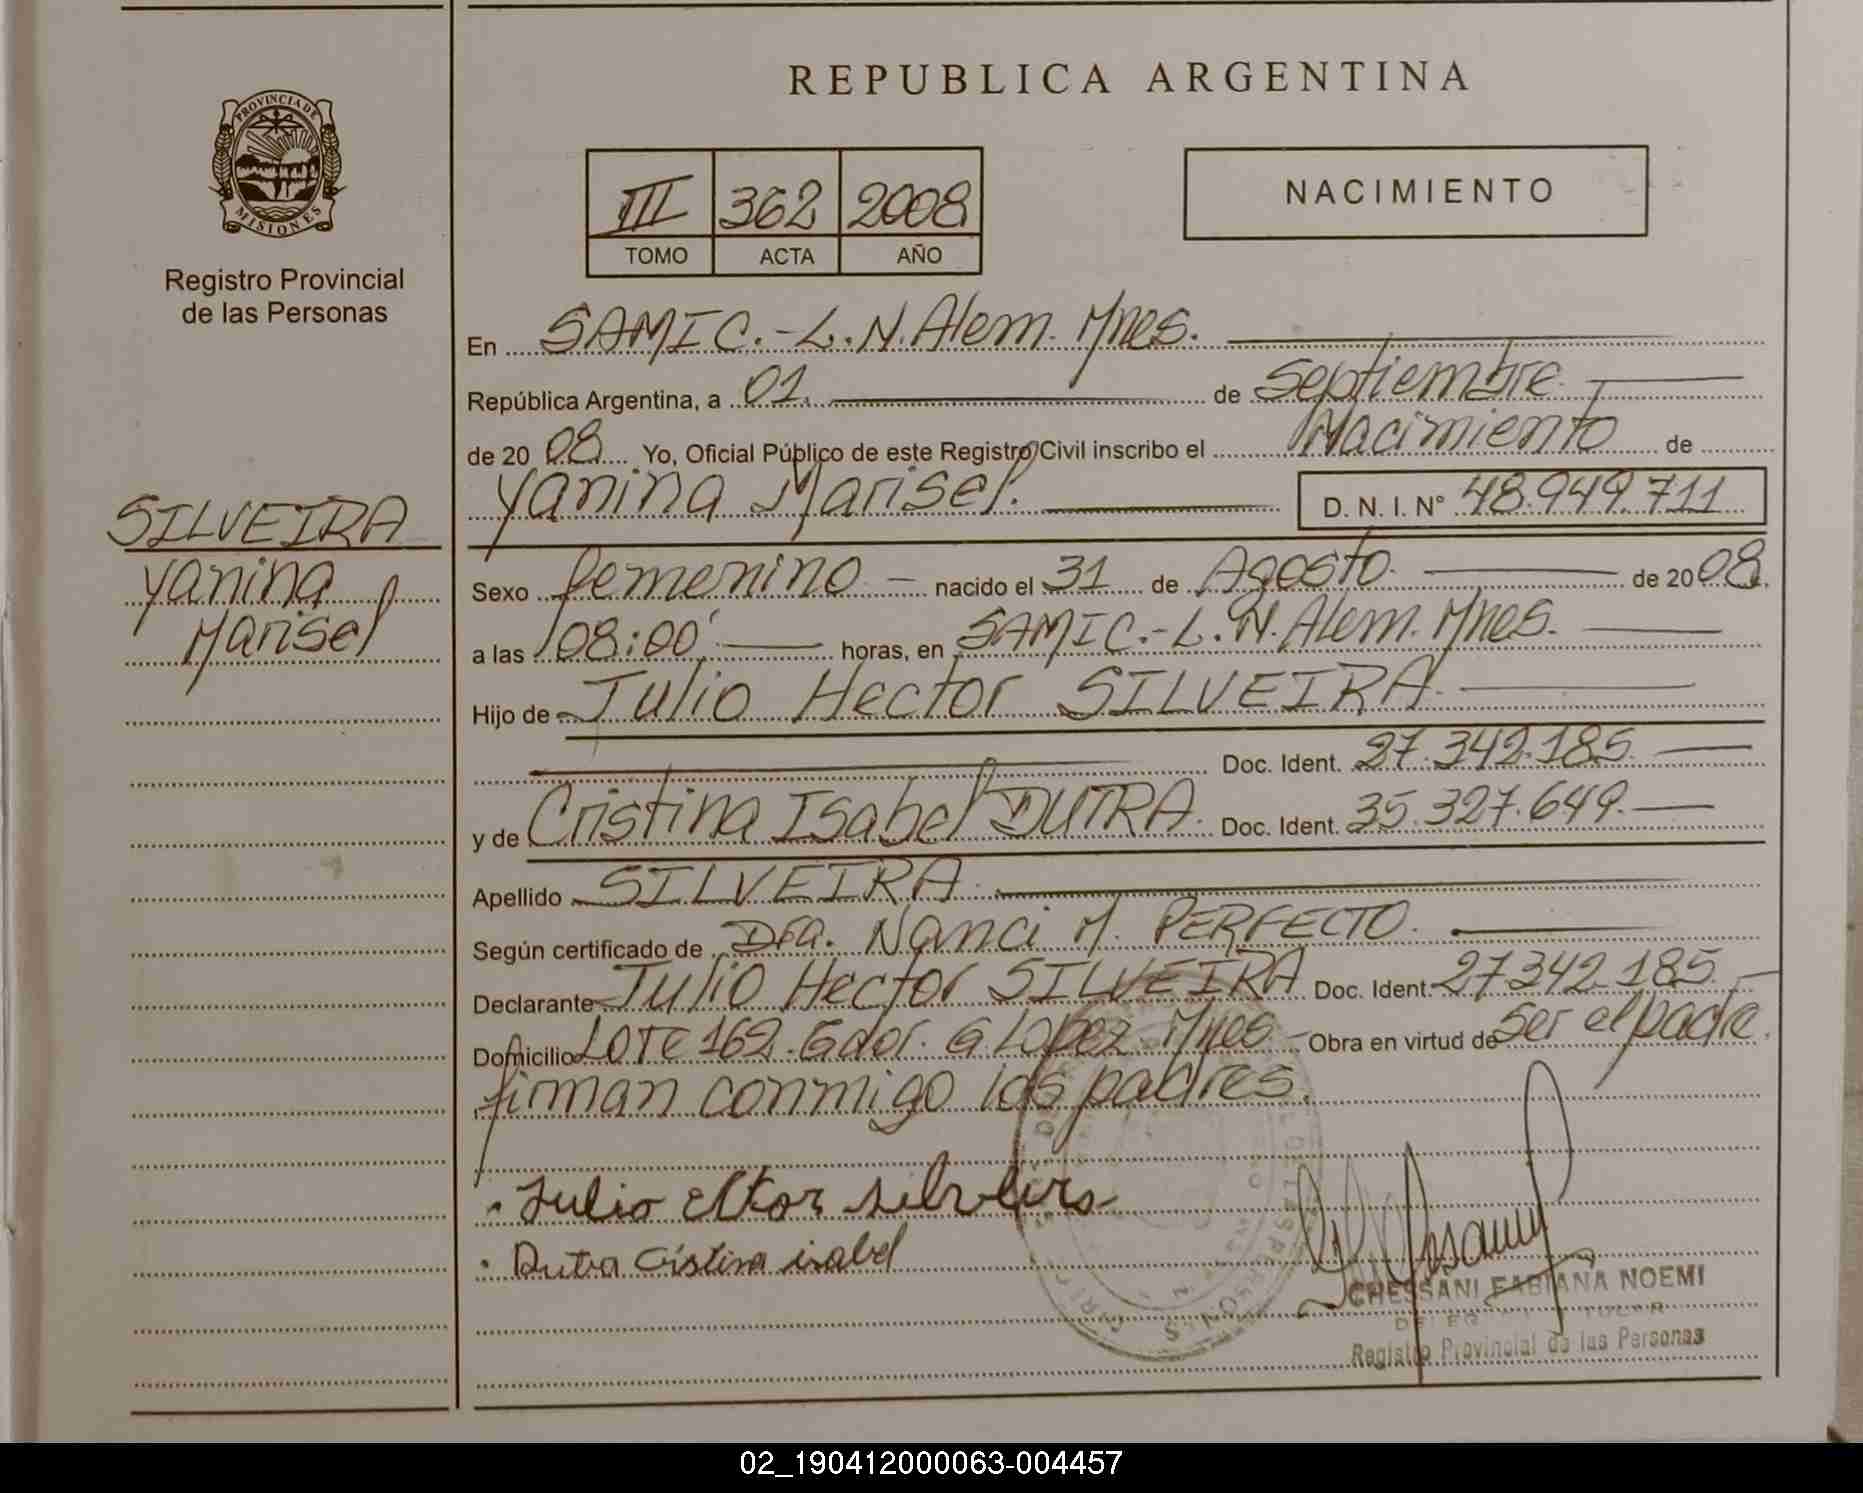 REPUBLICA ARGENTINA
PROVINCIA DE
MISIONES
Registro Provincial
de las Personas
III 362 2008
TOMO ACTA AÑO
NACIMIENTO
En SAMIC.-L.N.Alem. Mnes.
República Argentina, a 01. de Septiembre
de 20 08 Yo, Oficial Público de este Registro Civil inscribo el Nacimiento de
Yanina Marisel. D. N. I. Nº 48.949.711
SILVEIRA
Yanina
Marisel
Sexo femenino - nacido el 31 de Agosto. de 20 08.
a las 08:00' horas, en SAMIC.-L.N.Alem. Mnes.
Hijo de Julio Hector SILVEIRA.
Doc. Ident. 27.342.185.
y de Cristina Isabel DUTRA. Doc. Ident. 35.327.649.
Apellido SILVEIRA.
Según certificado de Dra. Nanci M. PERFECTO.
Declarante Julio Hector SILVEIRA Doc. Ident. 27.342.185.-
Domicilio LOTE 162. Gdor. G. Lopez. Mnes - Obra en virtud de ser el padre.
firman conmigo los padres.
Julio ektor silveira
Dutra Cistina isabel
CHESSANI FABIANA NOEMI
Registro Provincial de las Personas
02_190412000063-004457